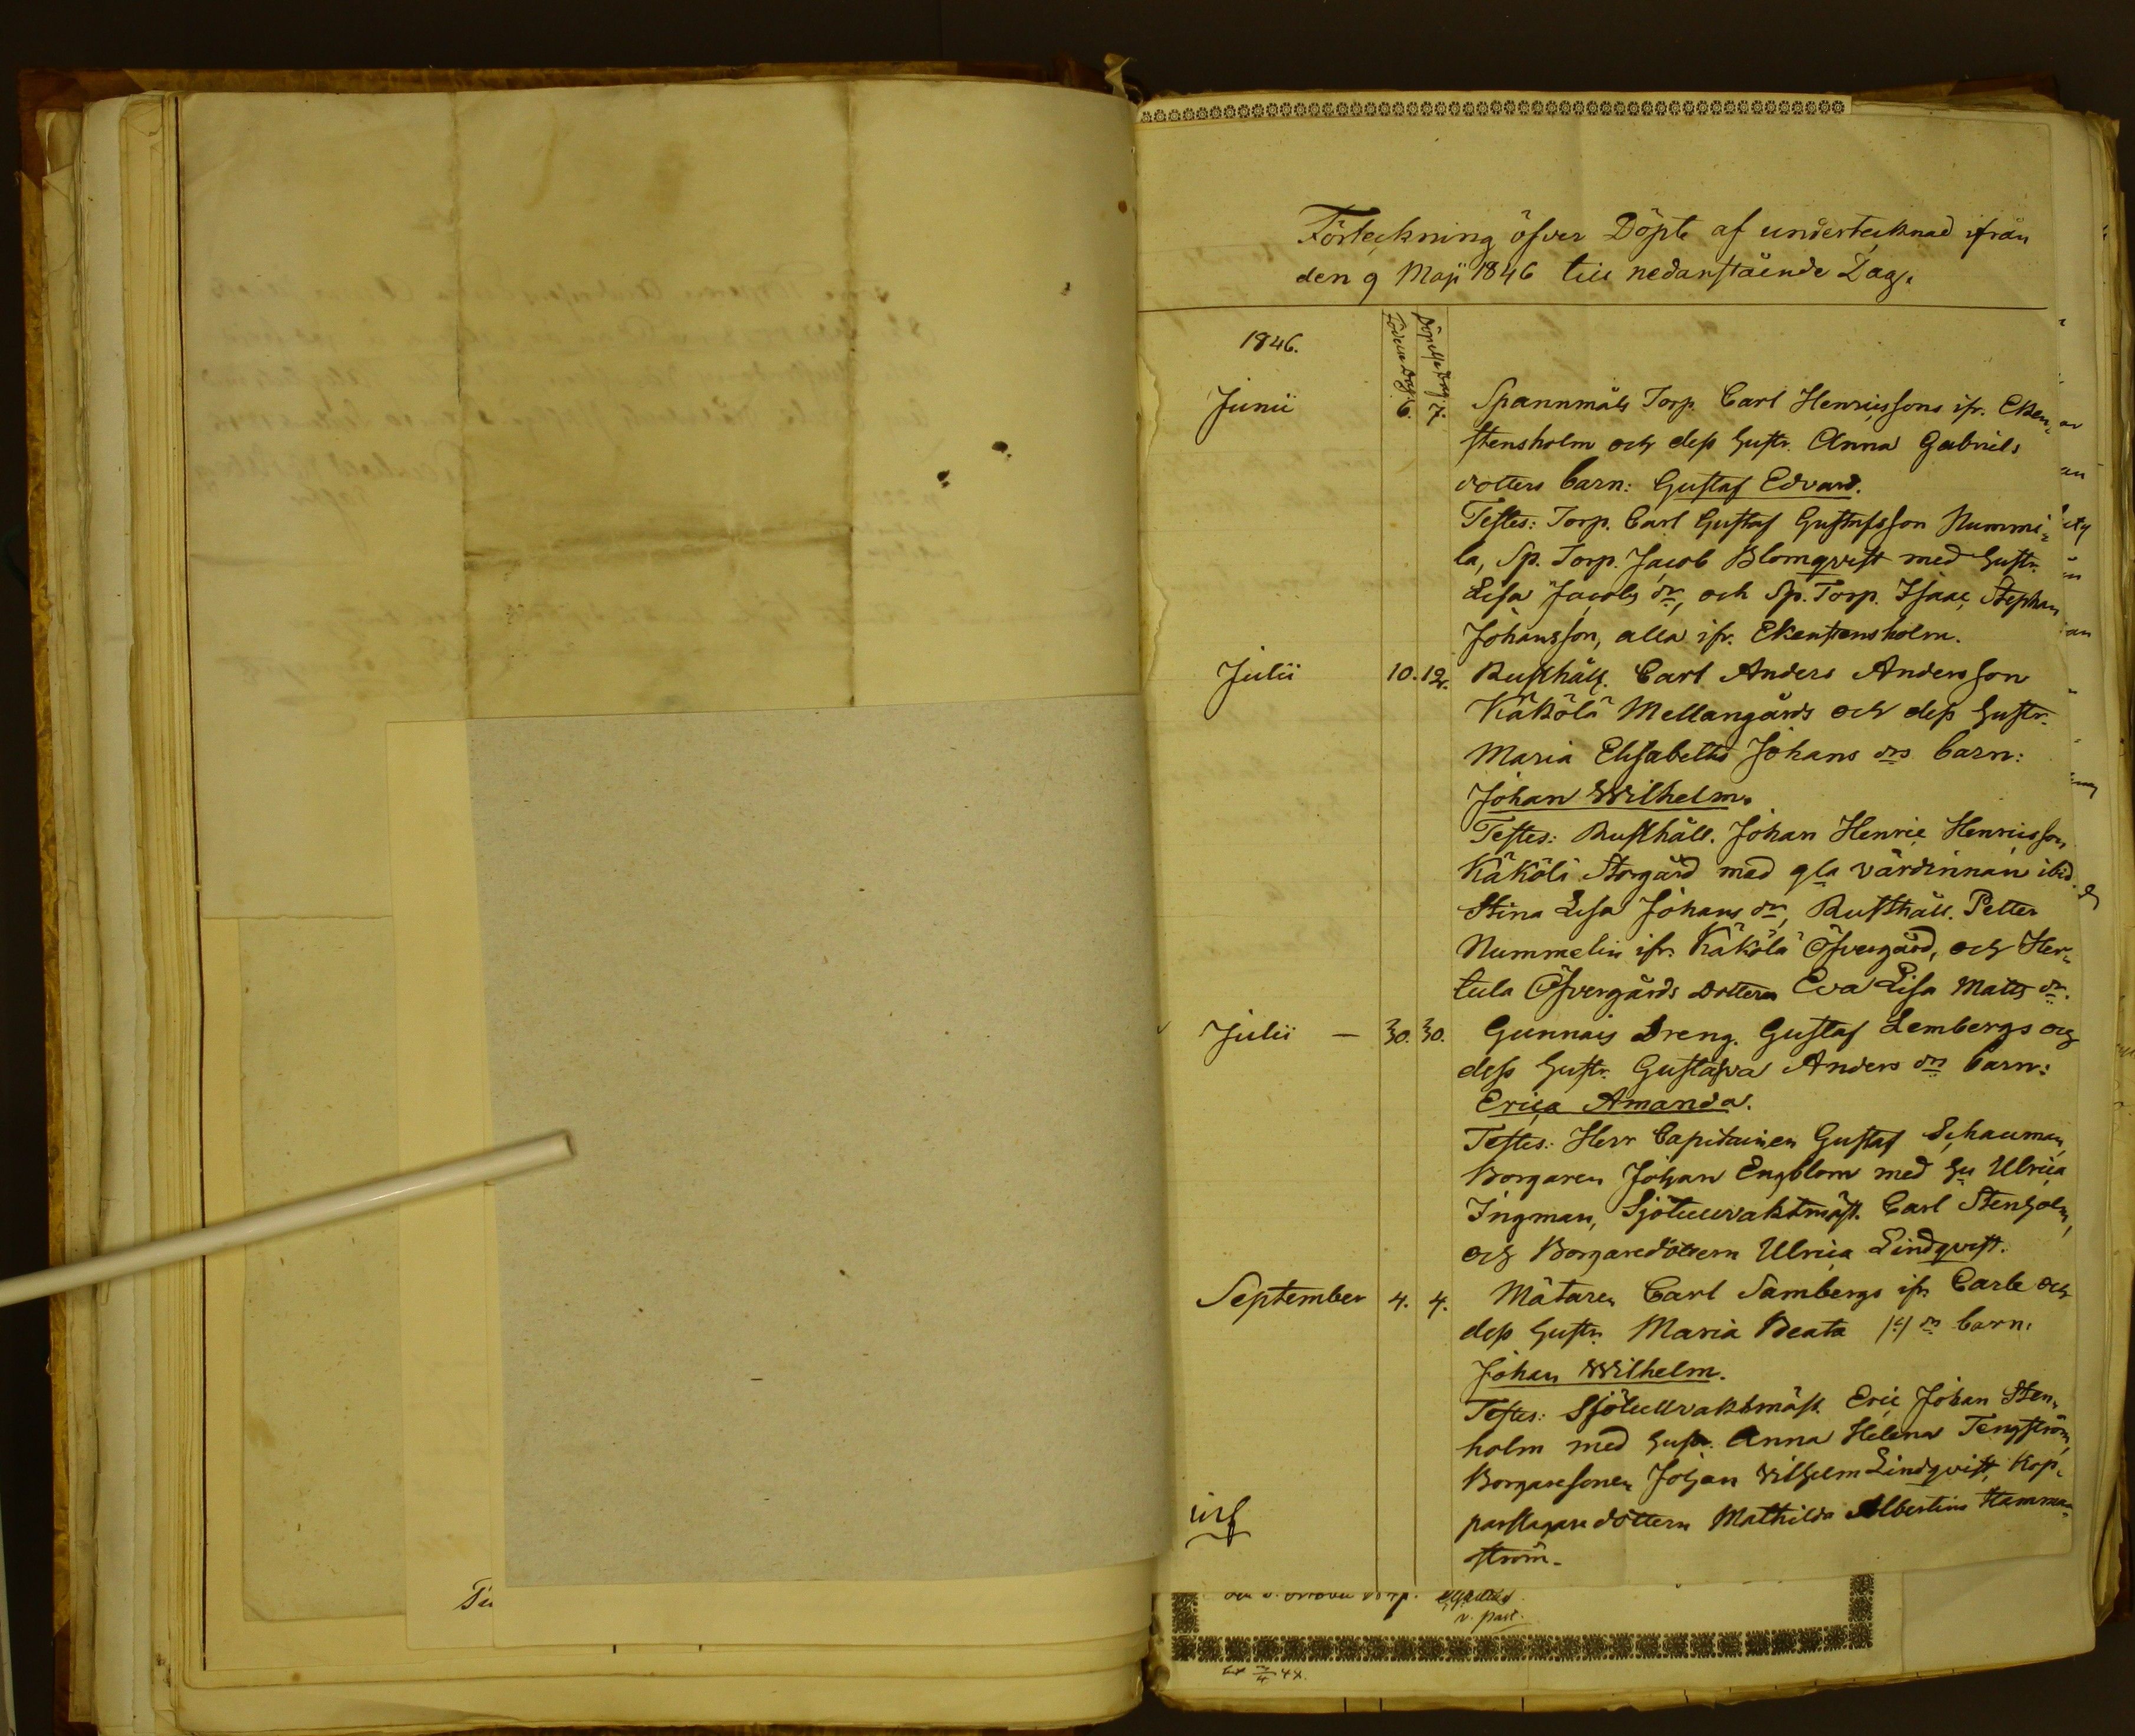 Förteckning öfver Döpte af undertecknad ifrån
den 9 Maji 1846 till nedanstående Dag.
1846.
Födelse Dag.
Döpelse Dag.
Junii 6. 7. Spannmåls Torp. Carl Henricssons ifr. Eken-
stensholm och dess hustr. Anna Gabriels
dotters barn: Gustaf Edvard.
Testes: Torp. Carl Gustaf Gustafsson Nummi-
la, Sp. Torp. Jacob Blomqvist med hustr.
Lisa Jacobs dr, och Sp. Torp. Isaac Stephan
Johansson, alla ifr. Ekenstensholm.
Julii 10. 12. Rusthåll. Carl Anders Andersson
Käkölä Mellangårds och dess hustr.
Maria Elisabetha Johans drs barn:
Johan Wilhelm.
Testes: Rusthåll. Johan Henric Henricsson
Käkölä Storgård med gla värdinnan ibid.
Stina Lisa Johans dr, Rusthåll. Petter
Nummelin ifr. Käkölä Öfvergård, och Her-
tula Öfvergårds Dottern Eva Lisa Matts dr.
Julii — 30. 30. Gunnais Dreng. Gustaf Lembergs och
dess hustr. Gustafva Anders drs barn:
Erica Amanda.
Testes: Herr Capitainen Gustaf Schauman,
Borgaren Johan Engblom med hu Ulrica
Ingman, Sjötullvaktmäst. Carl Stenholm,
och Borgaredottern Ulrica Lindqvist.
September 4. 4. Mätaren Carl Sambergs ifr. Carle och
dess hustr. Maria Beata barn:
Johan Wilhelm.
Testes: Sjötullvaktmäst. Eric Johan Sten-
holm med hustr. Anna Helena Tengström,
Borgaresonen Johan Vilhelm Lindqvist, Kop-
parslagaredottern Mathilda Albertina Hammar-
ström.
v. past.